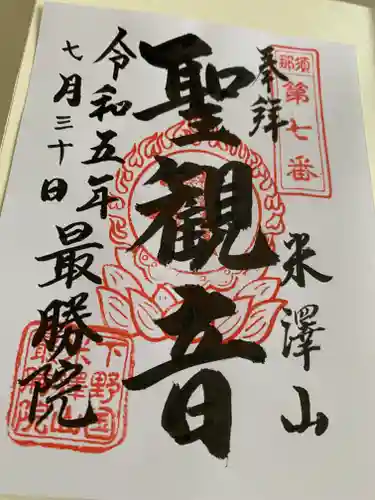 奉拝
那須
第七番
米澤山
聖観音
令和五年
七月三十日
最勝院
下野国